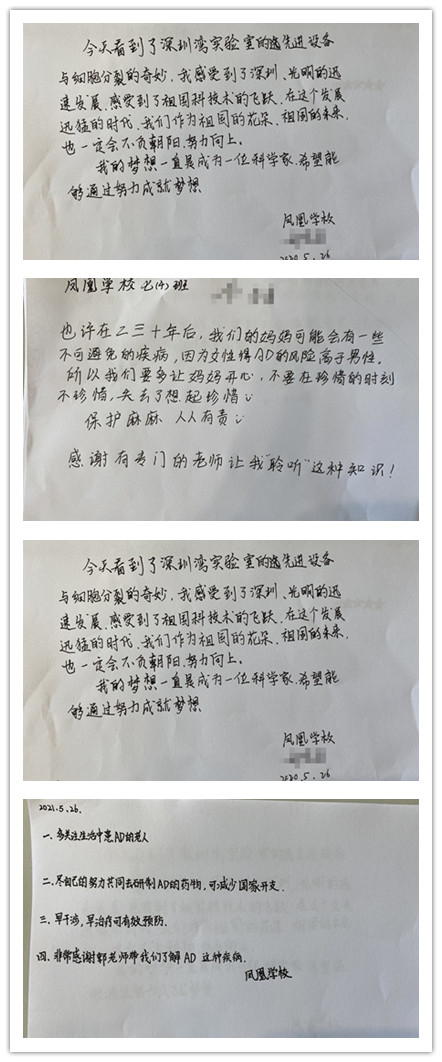 今天看到了深圳湾实验室的先进设备
与细胞分裂的奇妙,我感受到了深圳、光明的迅
速发展,感受到了祖国科技术的飞跃,在这个发展
迅猛的时代,我们作为祖国的花朵、祖国的未来,
也一定会不负朝阳,努力向上。
我的梦想一直是成为一位科学家,希望能
够通过努力成就梦想
凤凰学校
2020.5.26
凤凰学校七(4)班
也许在二三十年后,我们的妈妈可能会有一些
不可避免的疾病,因为女性得AD的风险高于男性。
所以我们要多让妈妈开心,不要在珍惜的时刻
不珍惜,失去了想起珍惜
保护麻麻 人人有责
感谢有专门的老师让我"聆听"这种知识!
今天看到了深圳湾实验室的先进设备
与细胞分裂的奇妙,我感受到了深圳、光明的迅
速发展,感受到了祖国科技术的飞跃,在这个发展
迅猛的时代,我们作为祖国的花朵、祖国的未来,
也一定会不负朝阳,努力向上。
我的梦想一直是成为一位科学家,希望能
够通过努力成就梦想
凤凰学校
2020.5.26
2021.5.26.
一、多关注生活中患AD的老人
二、尽自己的努力共同去研制AD的药物,可减少国家开支.
三、早干涉,早治疗可有效预防.
四、非常感谢郭老师带我们了解AD这种疾病.
凤凰学校